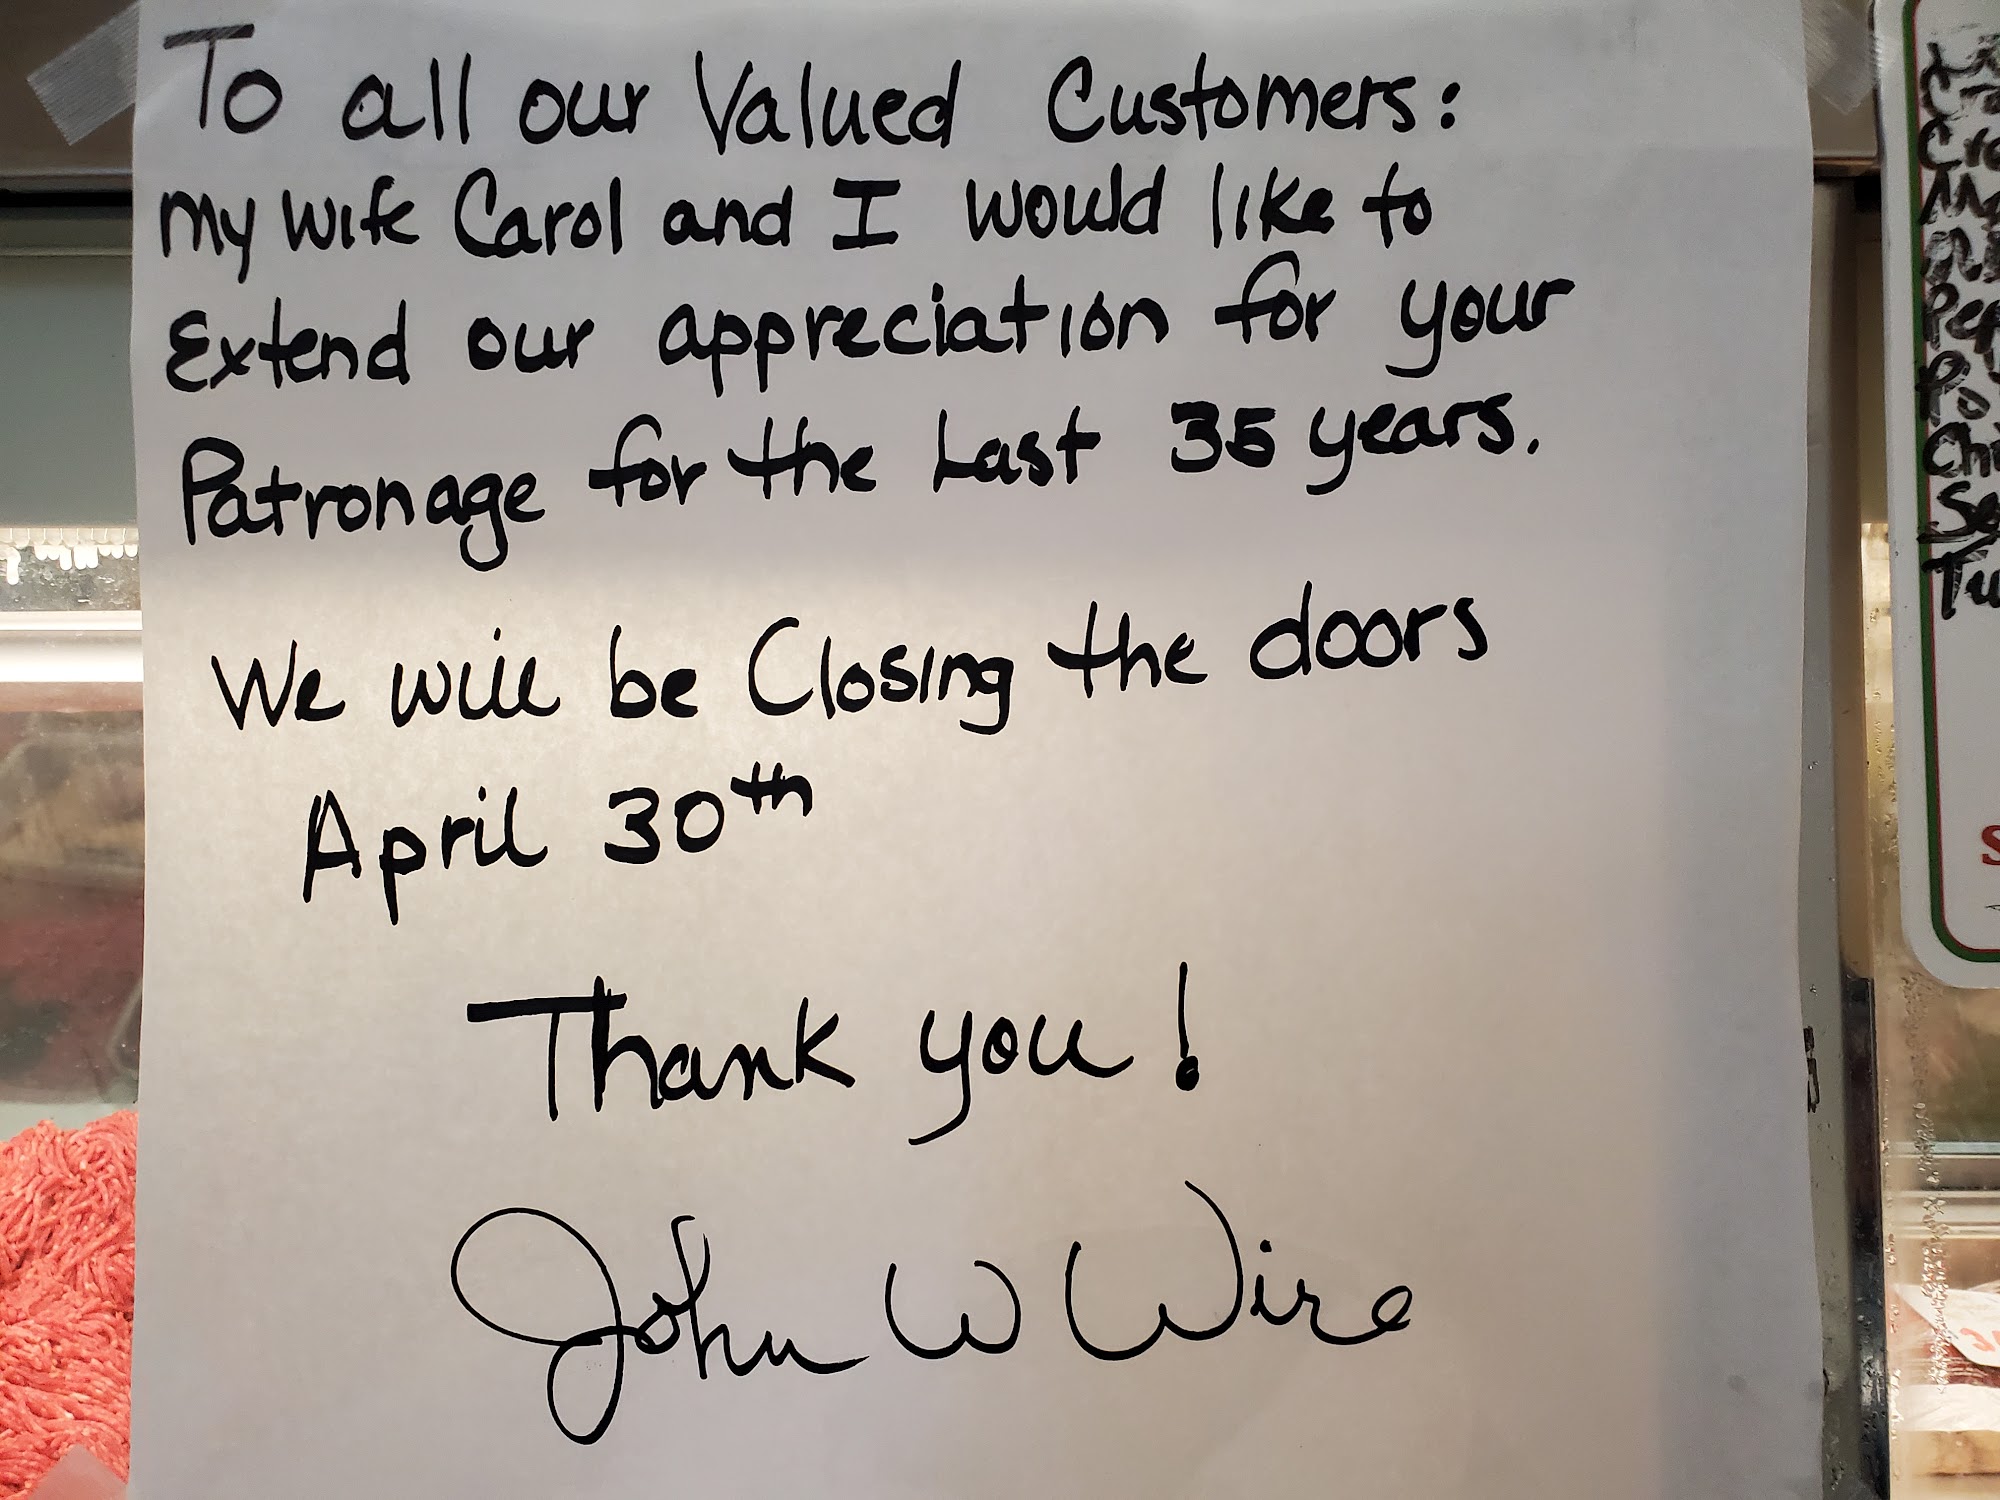 To all our Valued Customers:
my wife Carol and I would like to
Extend our appreciation for your
Patronage for the Last 35 years.
We will be Closing the doors
April 30th
Thank you!
John W Wire